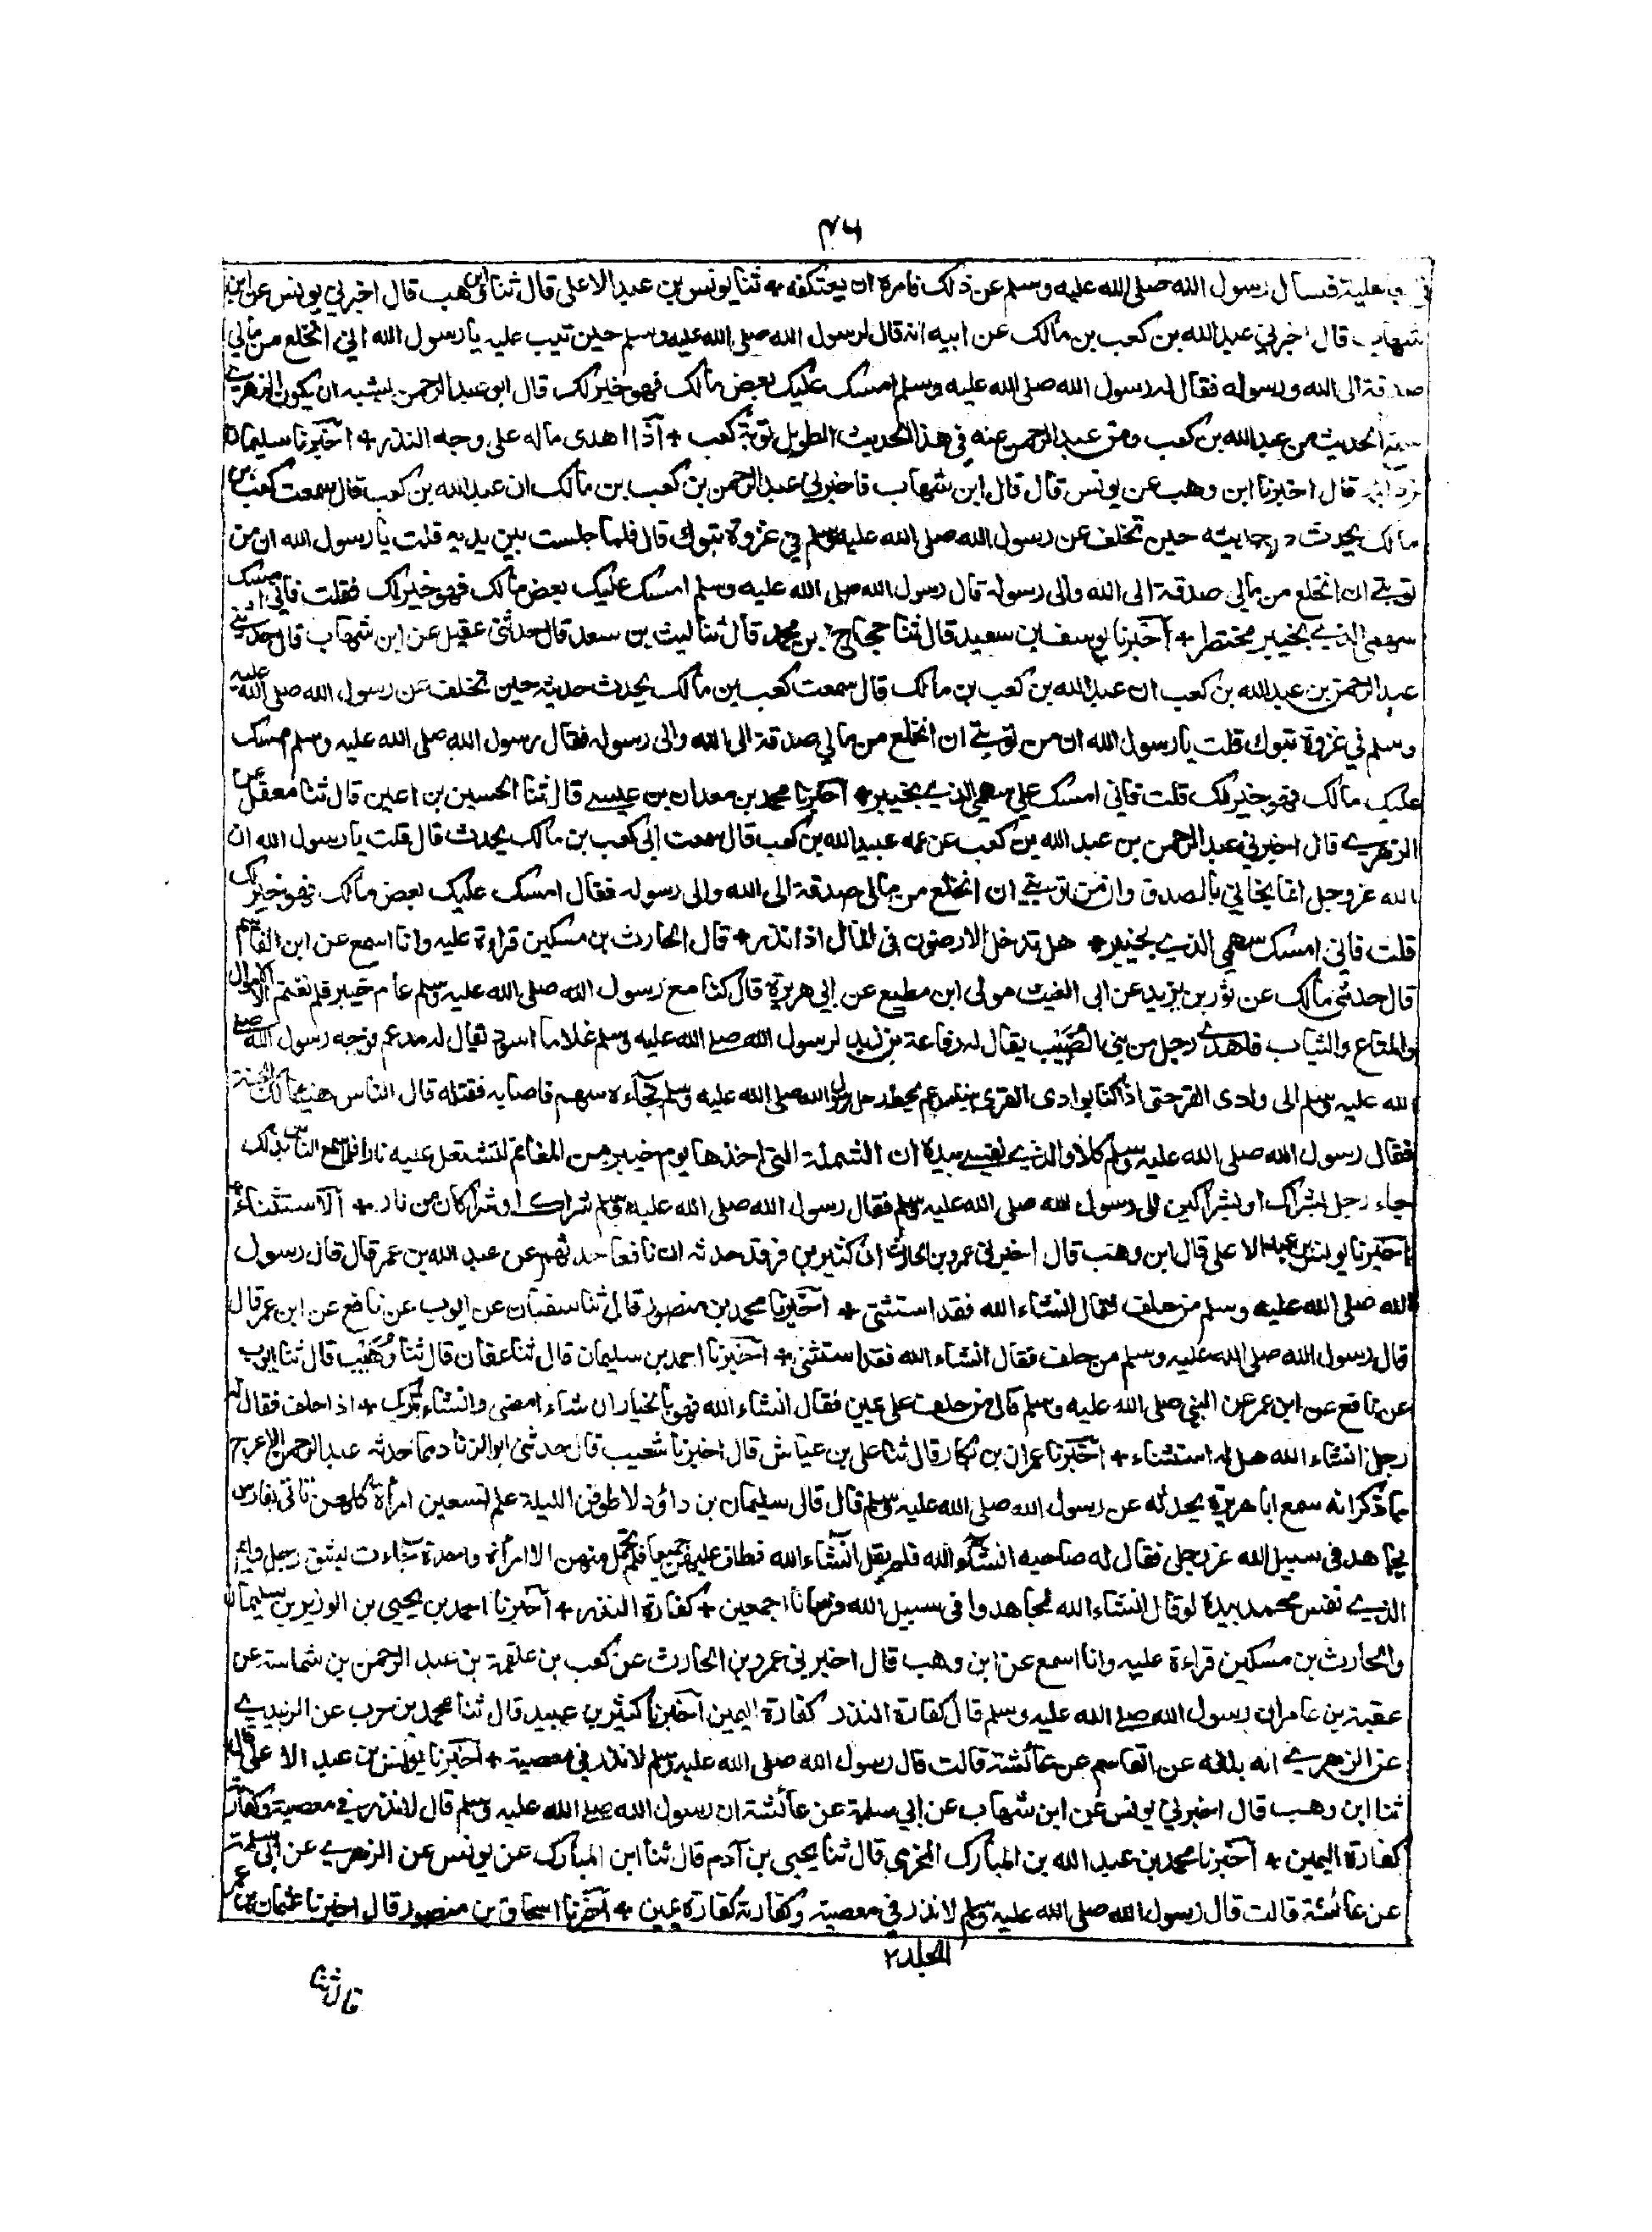 ٣٦
في الجاهلية فسأل رسول الله صلى الله عليه وسلم عن ذلك فامره ان يعتكفه + ثنا يونس بن عبد الاعلى قال ثنا ابن وهب قال اخبرني يونس عن ابن
شهاب قال اخبرني عبد الله بن كعب بن مالك عن ابيه انه قال لرسول الله صلى الله عليه وسلم حين تيب عليه يا رسول الله اني انخلع من مالي
صدقة الى الله ورسوله فقال له رسول الله صلى الله عليه وسلم امسك عليك بعض مالك فهو خير لك قال ابو عبد الرحمن يشبه ان يكون الزهري
سمع الحديث من عبد الله بن كعب ومن عبد الرحمن عنه في هذا الحديث الطويل توبة كعب + اذا اهدى ماله على وجه النذر + اخبرنا سليمان
بن داود قال اخبرنا ابن وهب عن يونس قال قال ابن شهاب فاخبرني عبد الرحمن بن كعب بن مالك ان عبد الله بن كعب قال سمعت كعب بن
مالك يحدث حديثه حين تخلف عن رسول الله صلى الله عليه وسلم في غزوة تبوك قال فلما جلست بين يديه قلت يا رسول الله ان من
توبتي ان انخلع من مالي صدقة الى الله والى رسوله قال رسول الله صلى الله عليه وسلم امسك عليك بعض مالك فهو خير لك فقلت فاني امسك
سهمي الذي بخيبر مختصر + اخبرنا يوسف بن سعيد قال ثنا حجاج بن محمد قال ثنا ليث بن سعد قال حدثني عقيل عن ابن شهاب قال حدثني
عبد الرحمن بن عبد الله بن كعب ان عبد الله بن كعب بن مالك قال سمعت كعب بن مالك يحدث حديثه حين تخلف عن رسول الله صلى الله عليه
وسلم في غزوة تبوك قلت يا رسول الله ان من توبتي ان انخلع من مالي صدقة الى الله والى رسوله فقال رسول الله صلى الله عليه وسلم امسك
عليك مالك فهو خير لك قلت فاني امسك علي سهمي الذي بخيبر + اخبرنا محمد بن معدان بن عيسى قال ثنا الحسين بن اعين قال ثنا معقل عن
الزهري قال اخبرني عبد الرحمن بن عبد الله بن كعب عن عمه عبيد الله بن كعب قال سمعت ابي كعب بن مالك يحدث قال قلت يا رسول الله ان
الله عز وجل انما نجاني بالصدق وان من توبتي ان انخلع من مالي صدقة الى الله والى رسوله فقال امسك عليك بعض مالك فهو خير لك
قلت فاني امسك سهمي الذي بخيبر + هل تدخل الارضون في المال اذا نذر + قال الحارث بن مسكين قراءة عليه وانا اسمع عن ابن القاسم
قال حدثني مالك عن ثور بن يزيد عن ابي الغيث مولى ابن مطيع عن ابي هريرة قال كنا مع رسول الله صلى الله عليه وسلم عام خيبر فلم نغنم الا الاموال
والمتاع والثياب فاهدى رجل من بني الضبيب يقال له رفاعة بن زيد لرسول الله صلى الله عليه وسلم غلاما اسود يقال له مدعم فوجه رسول الله صلى
الله عليه وسلم الى وادي القرى حتى اذا كنا بوادي القرى بينا مدعم يحط رحل رسول الله صلى الله عليه وسلم فجاءه سهم فاصابه فقتله قال الناس هنيئا لك الجنة
فقال رسول الله صلى الله عليه وسلم كلا والذي نفسي بيده ان الشملة التي اخذها يوم خيبر من المغانم لتشتعل عليه نارا فلما سمع الناس بذلك
جاء رجل بشراك او بشراكين الى رسول الله صلى الله عليه وسلم فقال رسول الله صلى الله عليه وسلم شراك او شراكان من نار + الاستثناء
اخبرنا يونس بن عبد الاعلى قال ابن وهب قال اخبرني عمرو بن الحارث ان كثير بن فرقد حدثه ان نافعا حدثهم عن عبد الله بن عمر قال قال رسول
الله صلى الله عليه وسلم من حلف فقال انشاء الله فقد استثنى + اخبرنا محمد بن منصور قال ثنا سفيان عن ايوب عن نافع عن ابن عمر قال
قال رسول الله صلى الله عليه وسلم من حلف فقال انشاء الله فقد استثنى + اخبرنا احمد بن سليمان قال ثنا عفان قال ثنا وهيب قال ثنا ايوب
عن نافع عن ابن عمر عن النبي صلى الله عليه وسلم قال من حلف على يمين فقال انشاء الله فهو بالخيار ان شاء امضى وانشاء ترك + اذا حلف فقال له
رجل انشاء الله هل له استثناء + اخبرنا عمران بن بكار قال ثنا علي بن عياش قال اخبرنا شعيب قال حدثني ابو الزناد مما حدثه عبد الرحمن الاعرج
مما ذكر انه سمع ابا هريرة يحدثه عن رسول الله صلى الله عليه وسلم قال قال سليمان بن داؤد لاطوفن الليلة على تسعين امرأة كلهن تاتي بفارس
يجاهد في سبيل الله عز وجل فقال له صاحبه انشاء الله فلم يقل انشاء الله فطاف عليهن جميعا فلم تحمل منهن الا امرأة واحدة جاءت بشق رجل وايم
الذي نفس محمد بيده لو قال انشاء الله لجاهدوا في سبيل الله فرسانا اجمعين + كفارة النذر + اخبرنا احمد بن يحيى بن الوزير بن سليمان
والحارث بن مسكين قراءة عليه وانا اسمع عن ابن وهب قال اخبرني عمرو بن الحارث عن كعب بن علقمة بن عبد الرحمن بن شماسة عن
عقبة بن عامر ان رسول الله صلى الله عليه وسلم قال كفارة النذر كفارة اليمين اخبرنا كثير بن عبيد قال ثنا محمد بن حرب عن الزبيدي
عن الزهري انه بلغه عن القاسم عن عائشة قالت قال رسول الله صلى الله عليه وسلم لا نذر في معصية + اخبرنا يونس بن عبد الاعلى قال
ثنا ابن وهب قال اخبرني يونس عن ابن شهاب عن ابي سلمة عن عائشة ان رسول الله صلى الله عليه وسلم قال لا نذر في معصية وكفارته
كفارة اليمين + اخبرنا محمد بن عبد الله بن المبارك المخرمي قال ثنا يحيى بن آدم قال ثنا ابن المبارك عن يونس عن الزهري عن ابي سلمة
عن عائشة قالت قال رسول الله صلى الله عليه وسلم لا نذر في معصية وكفارته كفارة يمين + اخبرنا اسحاق بن منصور قال اخبرنا عثمان بن عمر
المجلد ٢
قال ثنا